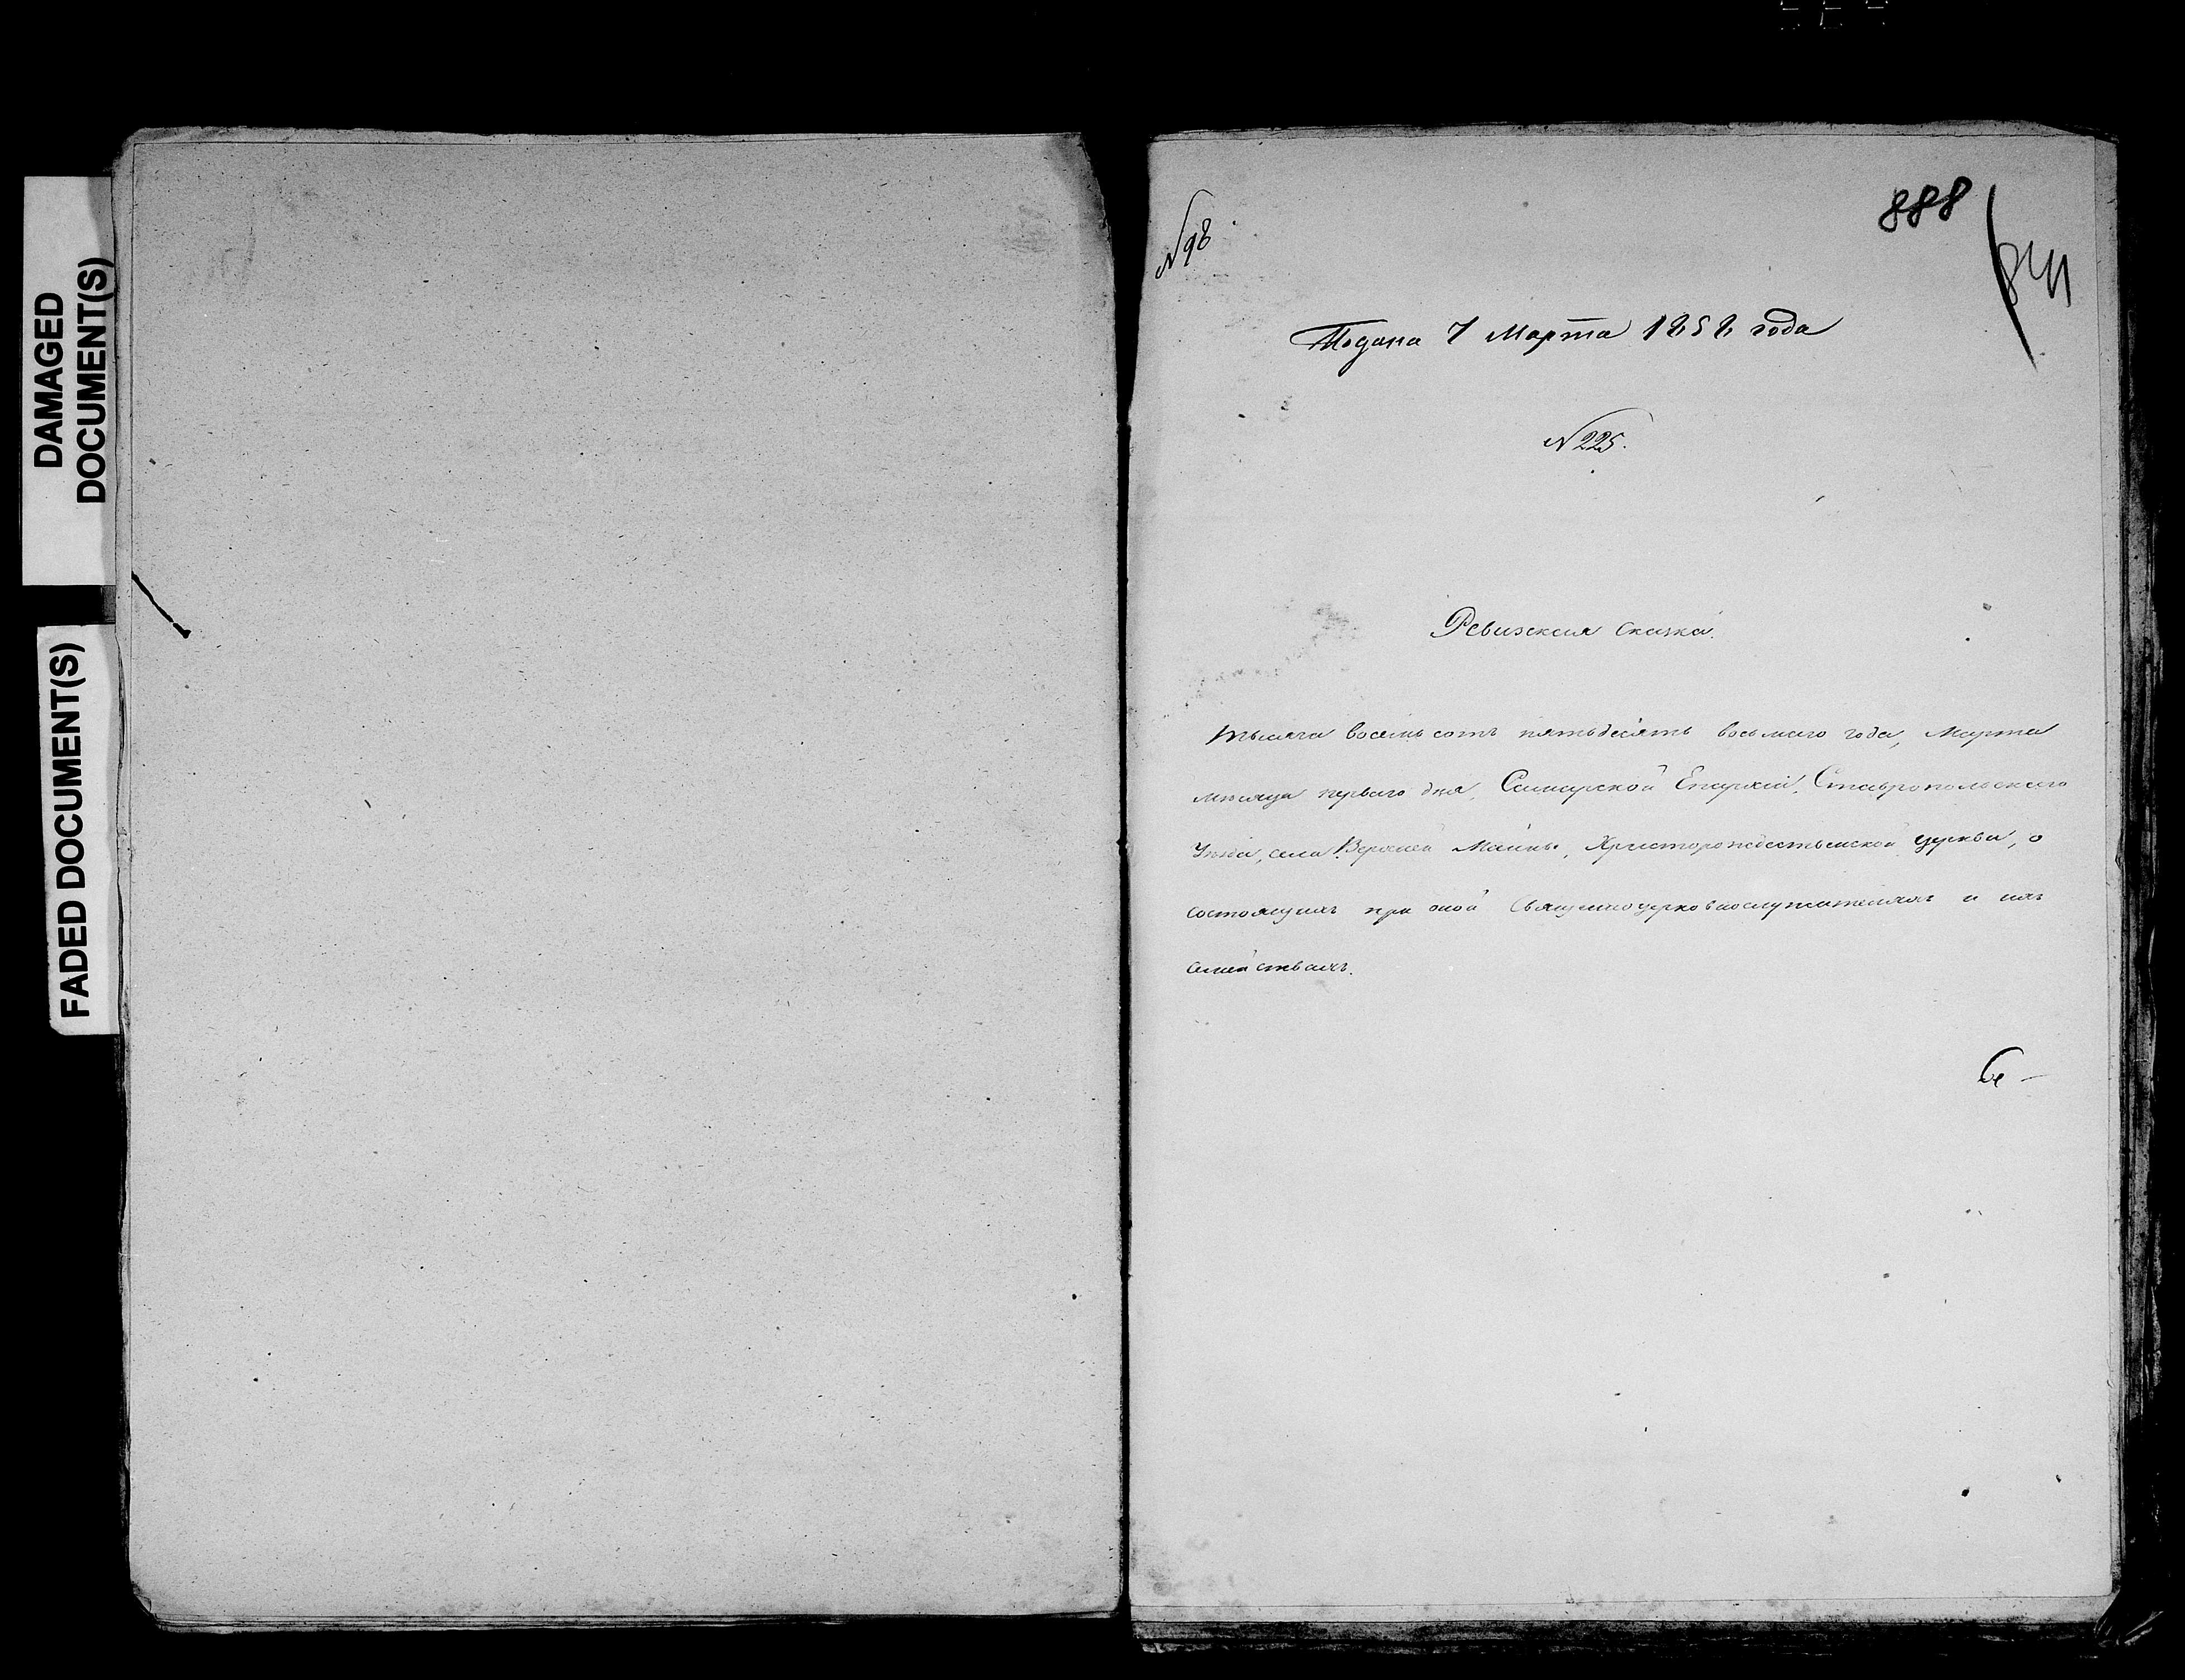 DAMAGED
DOCUMENT(S)
FADED DOCUMENT(S)
N 98
888
841
Подана 7 Марта 1858 года
N 225.
Ревизская сказка.
тысяча восемь сотъ пятьдесятъ восьмаго года, Марта
мѣсяца перваго дня, Самарской Епархіи, Ставропольскаго
Уѣзда, села Верхней Майны, Христорождественской церкви, о
состоящихъ при оной священноцерковнослужителяхъ и ихъ
семействахъ.